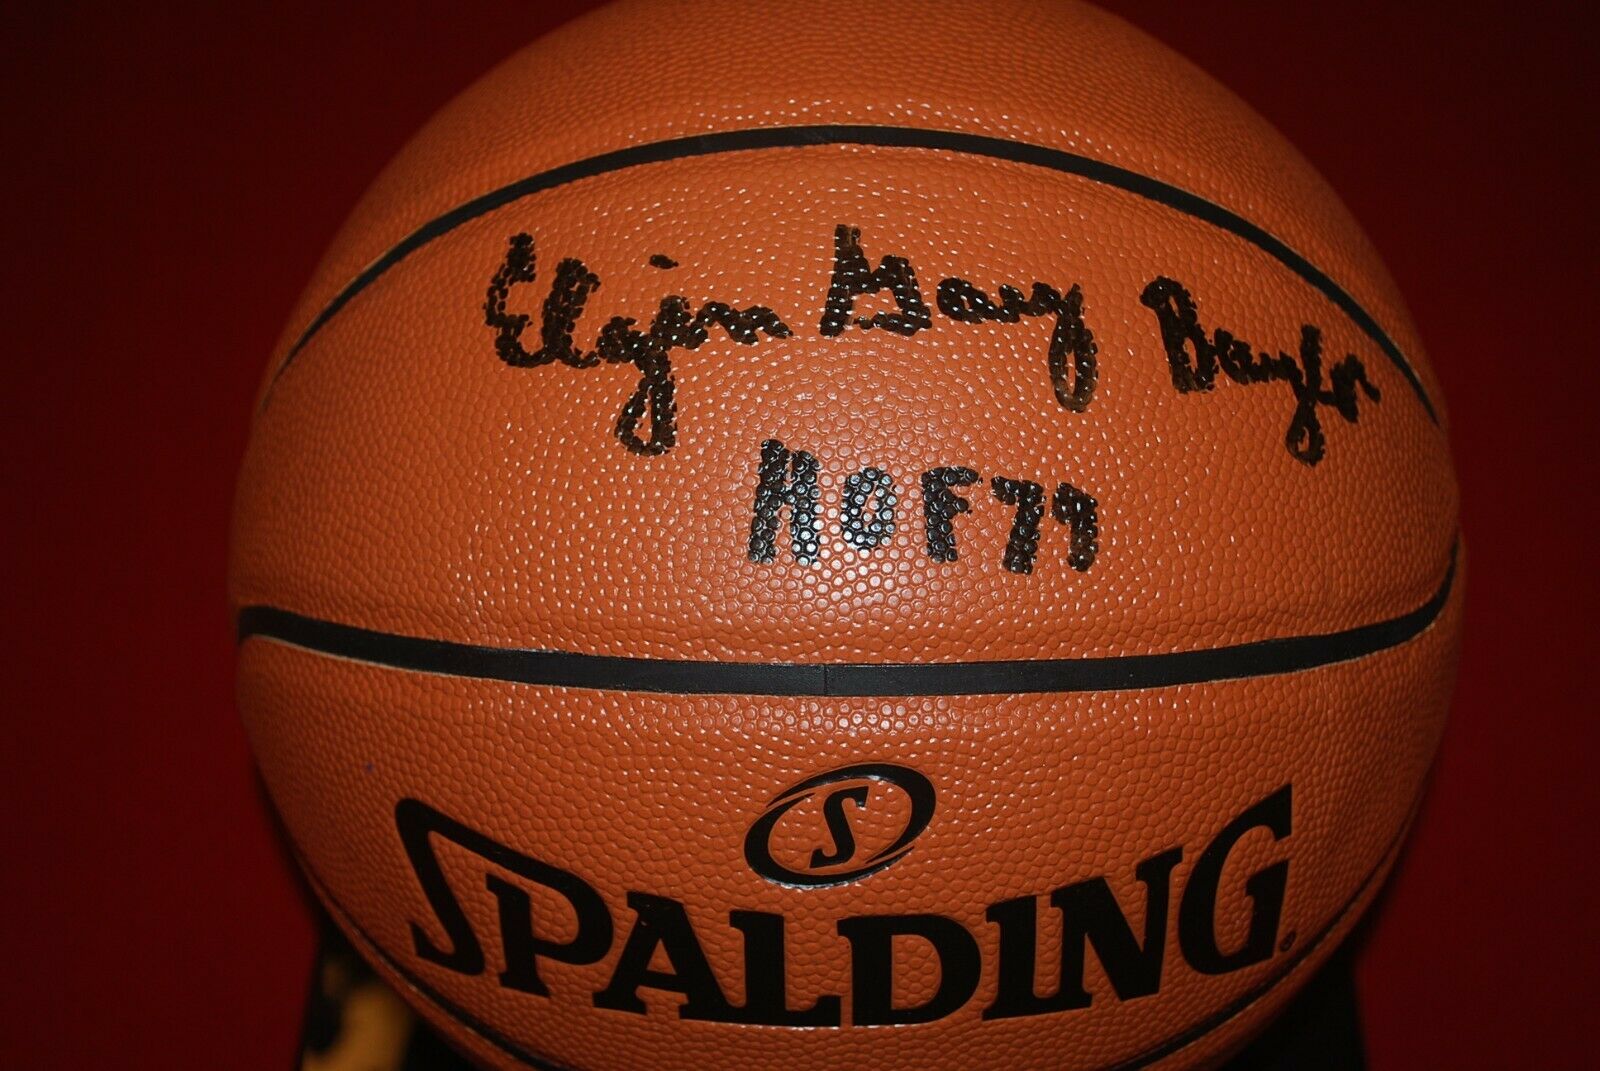 Elgin Gay Baylor
HOF 77
S
SPALDING®